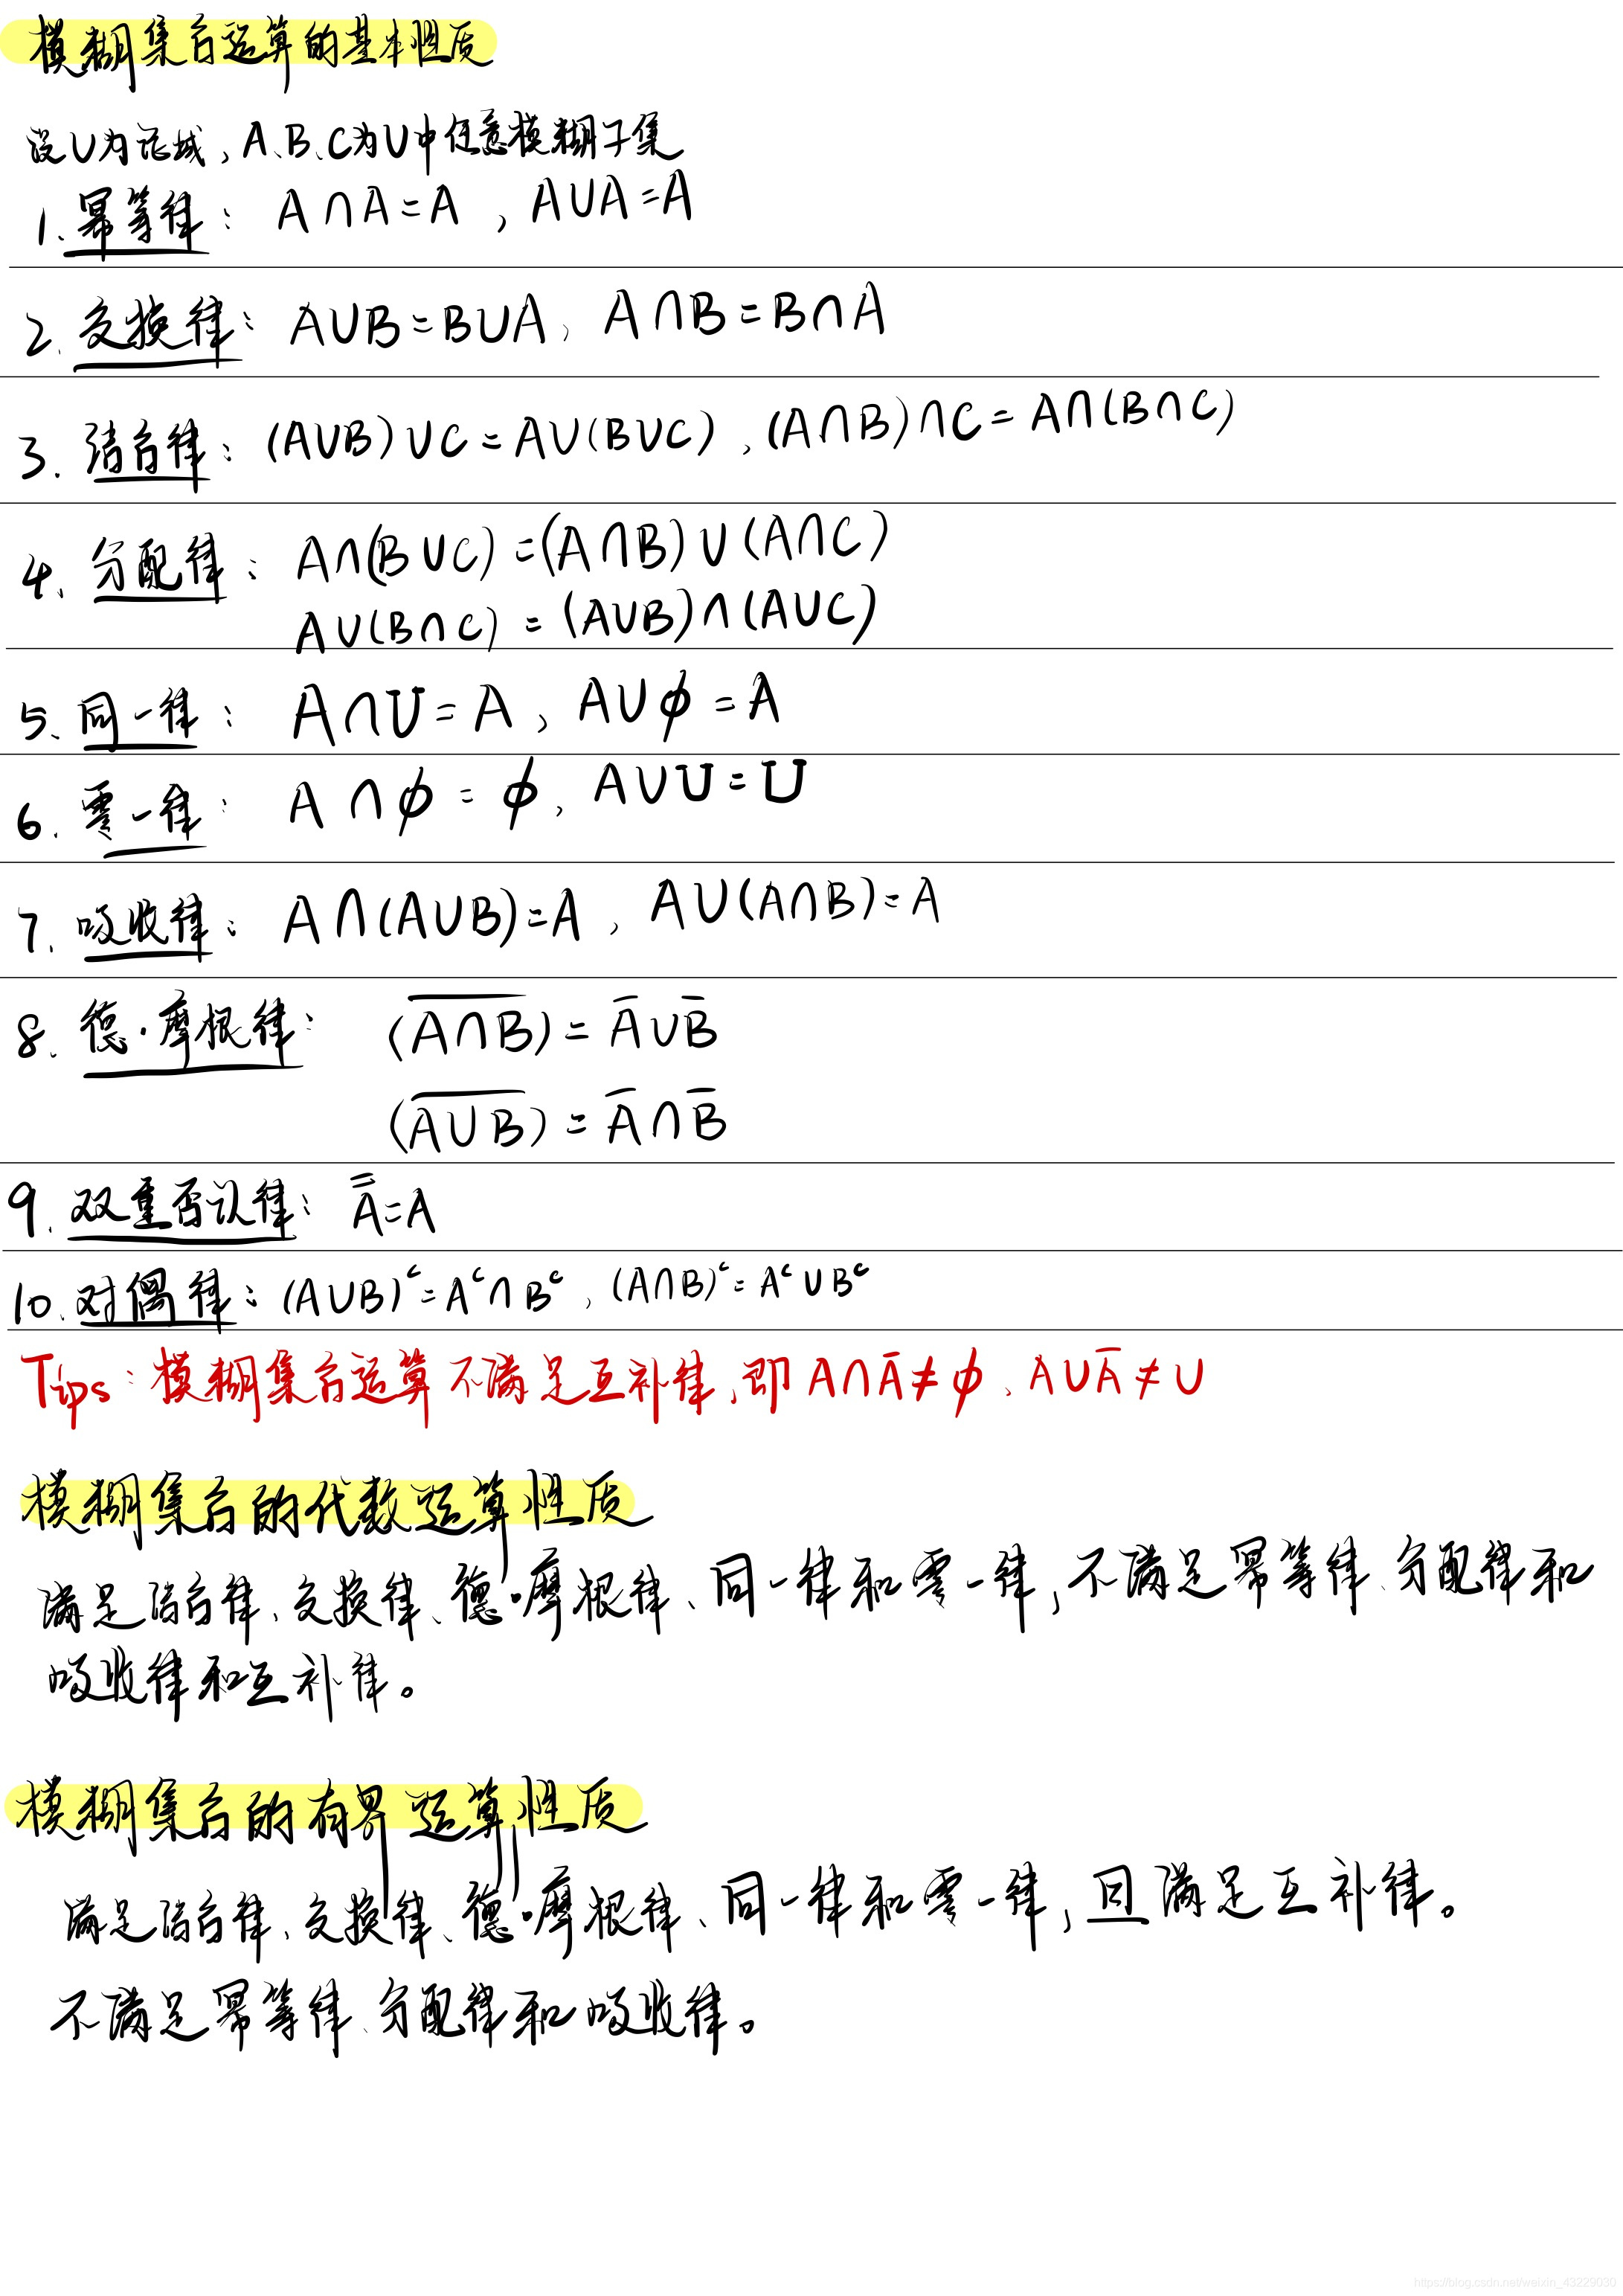 模糊集合运算的基本性质
设U为论域,A、B、C为U中任意模糊子集
1.幂等律: A∩A=A , A∪A=A
2.交换律: A∪B=B∪A、A∩B=B∩A
3.结合律: (A∪B)∪C=A∪(B∪C)、(A∩B)∩C=A∩(B∩C)
4.分配律: A∩(B∪C)=(A∩B)∪(A∩C)
A∪(B∩C)=(A∪B)∩(A∪C)
5.同一律: A∩U=A、A∪ϕ=A
6.零一律: A∩ϕ=ϕ, A∪U=U
7.吸收律: A∩(A∪B)=A , A∪(A∩B)=A
8.德·摩根律: (A̅∩̅B̅)=A̅∪B̅
(A̅∪̅B̅)=A̅∩B̅
9.双重否认律: A̿=A
10.对偶律: (A∪B)ᶜ=Aᶜ∩Bᶜ、(A∩B)ᶜ=Aᶜ∪Bᶜ
Tips:模糊集合运算不满足互补律,即A∩A̅≠ϕ、A∪A̅≠U
模糊集合的代数运算性质
满足结合律、交换律、德·摩根律、同一律和零一律,不满足幂等律、分配律和
吸收律和互补律。
模糊集合的有界运算性质
满足结合律、交换律、德·摩根律、同一律和零一律,且满足互补律。
不满足幂等律、分配律和吸收律。
https://blog.csdn.net/weixin_43229030